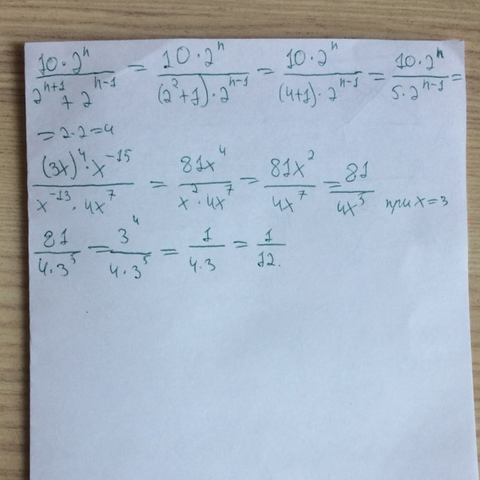 10·2ⁿ/(2ⁿ⁺¹ + 2ⁿ⁻¹) = 10·2ⁿ/((2²+1)·2ⁿ⁻¹) = 10·2ⁿ/((4+1)·2ⁿ⁻¹) = 10·2ⁿ/(5·2ⁿ⁻¹) =
= 2·2 = 4
(3x)⁴·x⁻¹⁵/(x⁻¹³·4x⁷) = 81x⁴/(x²·4x⁷) = 81x²/(4x⁷) = 81/(4x⁵) при x=3
81/(4·3⁵) = 3⁴/(4·3⁵) = 1/(4·3) = 1/12.